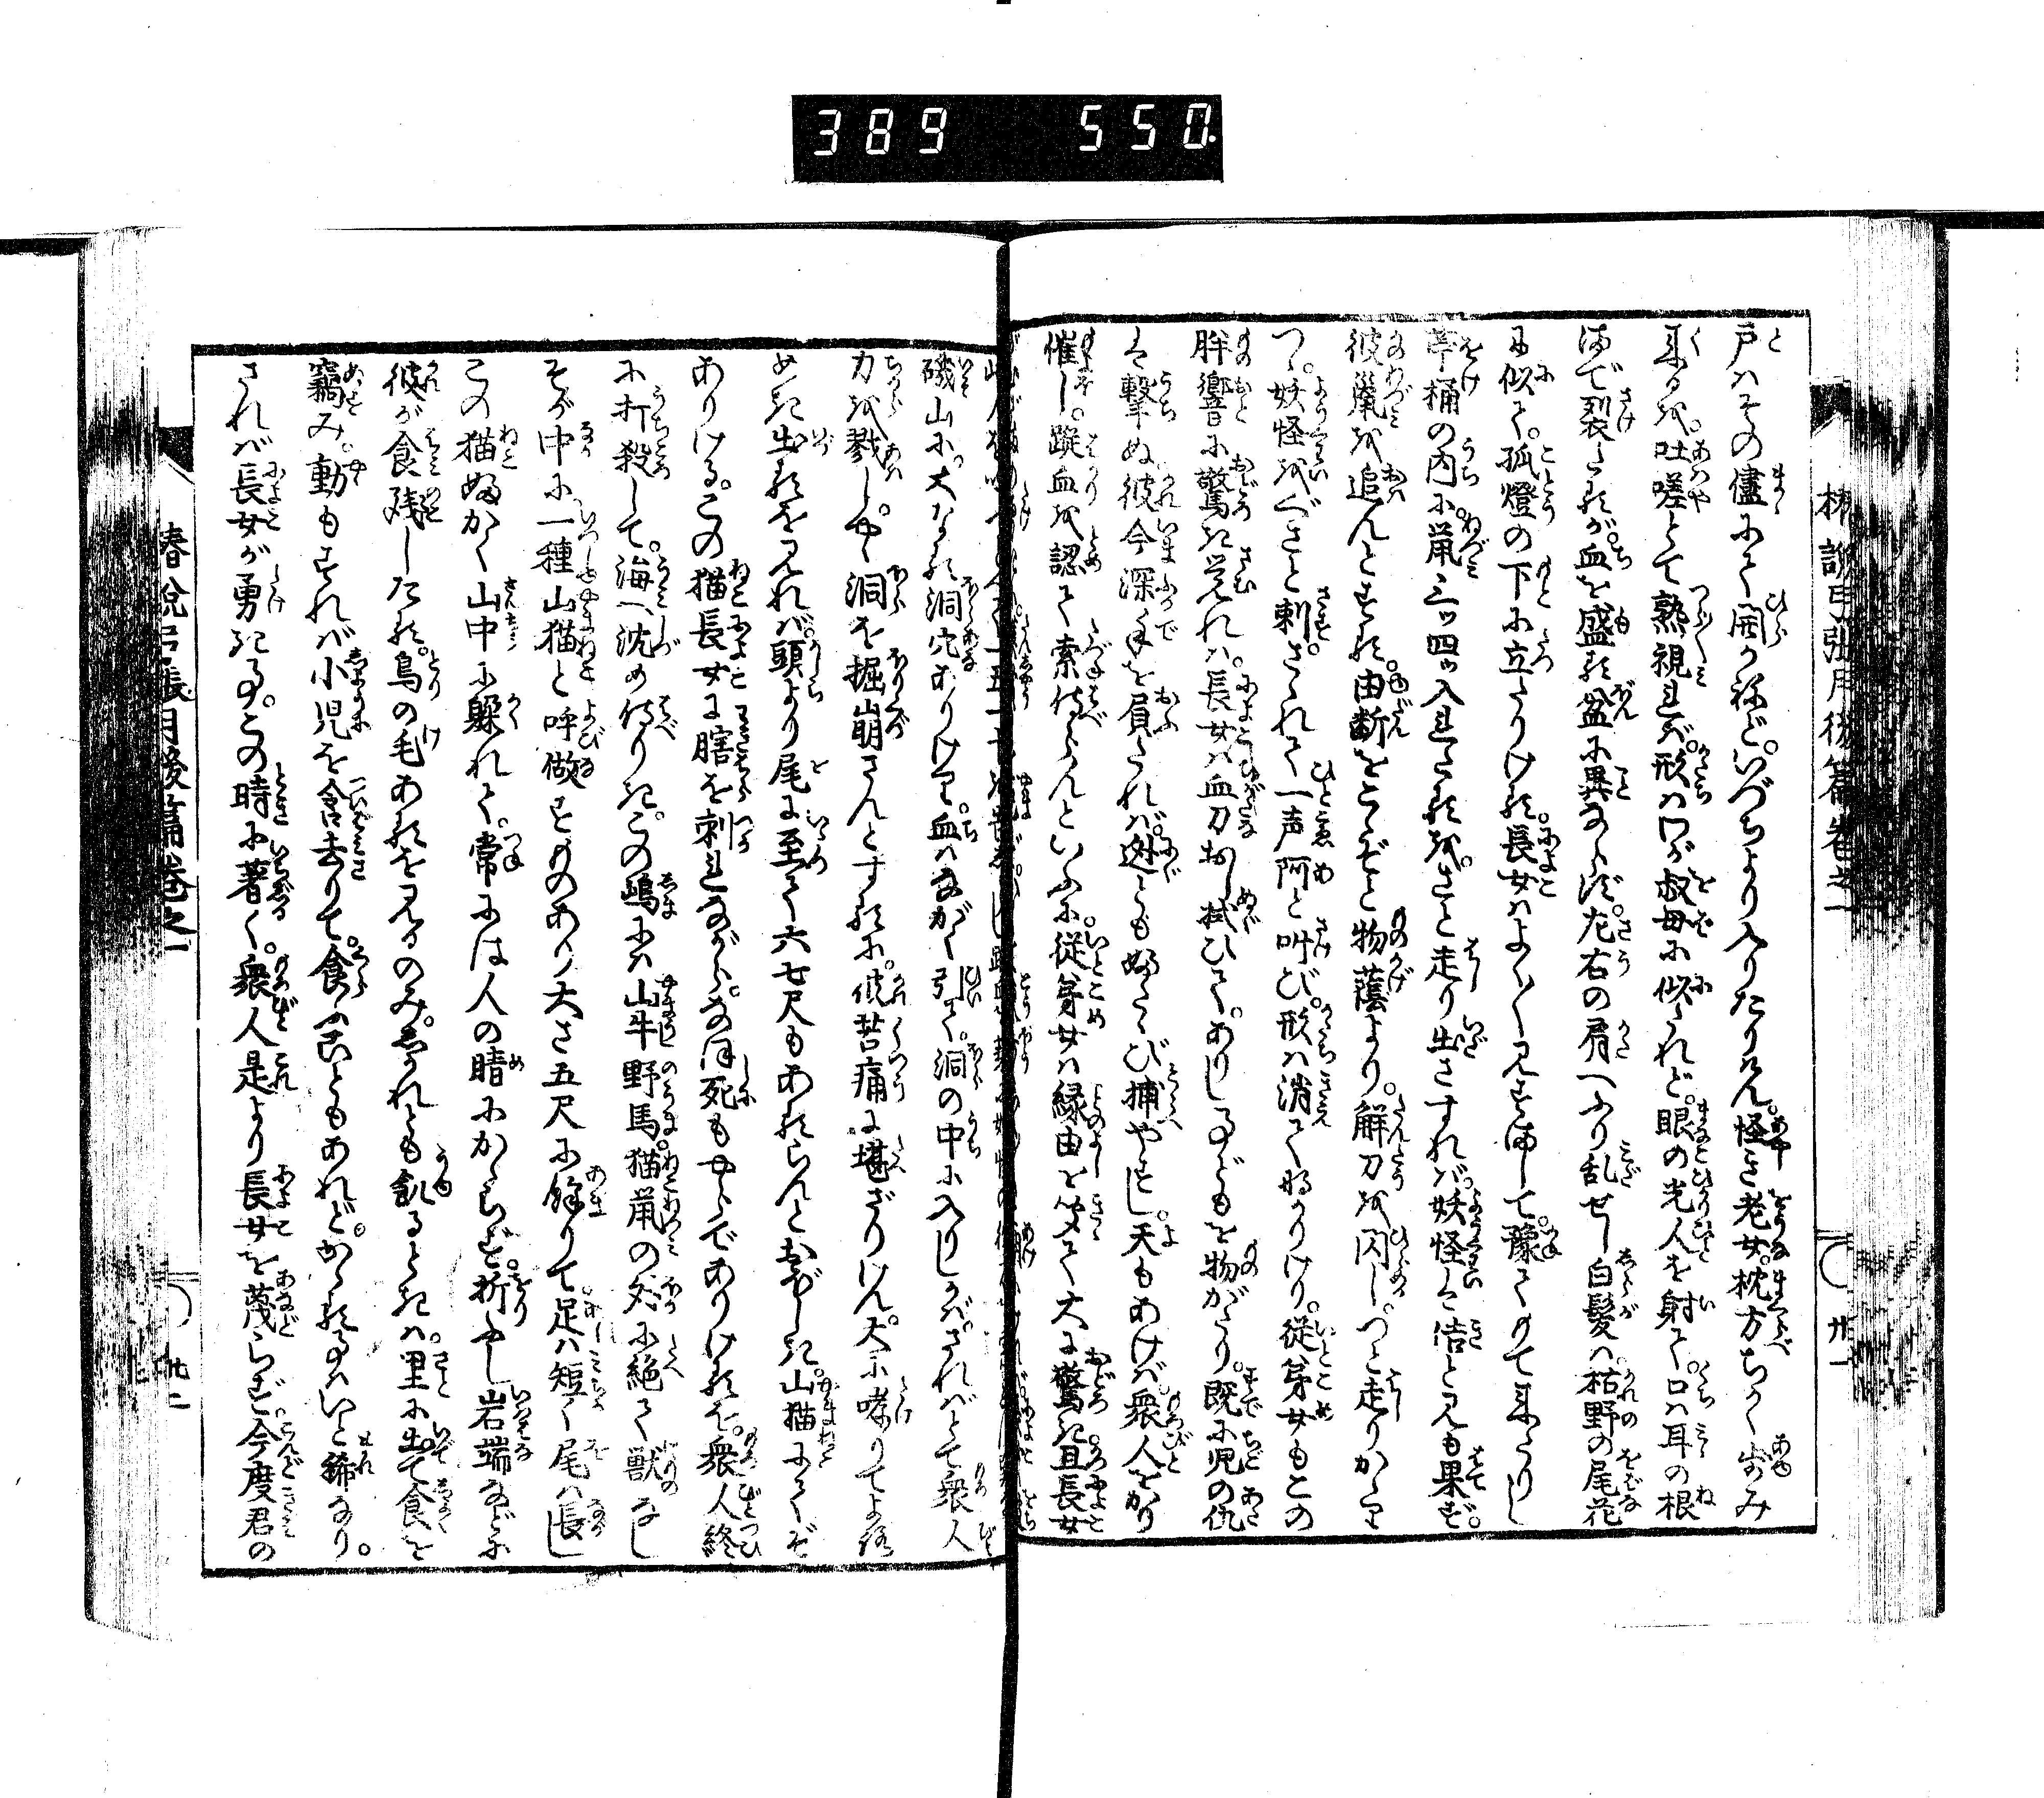 389 550
椿説弓張月後篇巻之一
戸はその儘にて開かねど。いづちより入りたりけん。怪き老女。枕方ちかく歩み
来るを。吐嗟とて熟視れば。形はわが叔母に似たれど。眼の光人を射て。口は耳の根
まで裂たるが。血を盛る盆に異ならず。左右の肩へふり乱せし白髪は。枯野の尾花
に似て。孤燈の下に立たりける。長女はよく〳〵見すまして。豫てのて来たりし
桶の内に。鼠三ッ四ッ入れたるを。さと走り出さすれば。妖怪は佶と見も果ず。
彼鼠を追んとする。由断をこゝぞと物蔭より。解刀を閃し。つと走りかゝり
つゝ。妖怪をぐさと刺。さゝれて一声阿と叫び。形は消てなかりけり。従弟女もこの
胖響に驚き覚れば。長女は血刀おし拭ひて。ありし事どもを物がたり。既に児の仇
は撃ぬ彼今深手を負たれば。迯とも ふたゝび捕やすし。天もあけば衆人をかり
催し。蹤血を認て索侍らんといふに。従弟女は縁由を聞て大に驚き且長女
磯山に。大なる洞穴ありけり。血はながく引て。洞の中に入りしかば。さればとて衆人
力を戮し。やゝ洞を掘崩さんとするに。彼苦痛に堪ざりけん。大に哮りてよろ
めき出るを見れば。頭より尾に至て六七尺もあるらんとおぼしき。山猫にてぞ
ありける。この猫長女に脇を刺れながら。なほ死もやらでありけるを。衆人終
に打殺して。海へ沈め侍りき。この嶋には山牛野馬。猫鼠の外に絶て獣なし
そが中に一種山猫と呼做すものあり大さ五尺に餘りて。足は短く尾は長し
この猫ふかく山中に躱れて。常には人の睛にかゝらず。折やし岩端などに
彼が食残したる。鳥の毛あるを見るのみ。しかれども飢るときは。里に出て食を
竊み。動もすれば小児を含去りて。食ふことも あれど。かゝる事はいと稀なり。
されば長女が勇き事。この時に著く。衆人是より長女を蔑らず。今度君の
椿説弓張月後篇巻之一
廿一
廿二